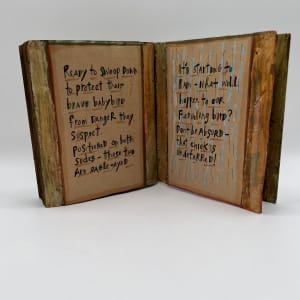 Ready to swoop down
to protect their
brave babybird
from danger they
suspect.
Positioned on both
sides - these two
are eagle-eyed.
It's starting to
rain - what will
happen to our
fledgling bird?
Don't be absurd -
that chick is
undeterred!